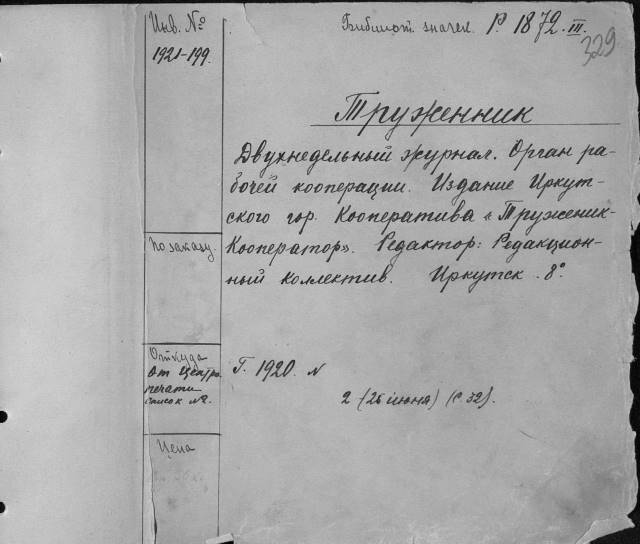 Инв. №
1921-199.
Библиот. значек. P. 1872. III.
329
Труженник
Двухнедельный журнал. Орган ра-
бочей кооперации. Издание Иркут-
ского гор. Кооператива «Труженик-
Кооператор». Редактор: Редакцион-
ный коллектив. Иркутск. 8°.
По заказу.
Откуда
От Центро-
печати
список №2.
Г. 1920. N
2 (25 июня) (с 32).
Цена